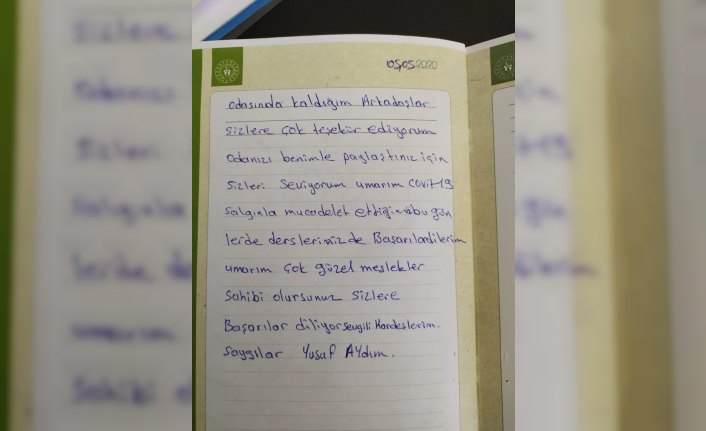 05.05.2020
odasında kaldığım Arkadaşlar
sizlere çok teşekür ediyorum
odanızı benimle paylaştınız için
sizleri Seviyorum umarım covit-19
salgınla mucadelet ettiğimiz bu gün
lerde derslerinizde Başarılardilerim
umarım çok güzel meslekler
Sahibi olursunuz sizlere
Başarılar diliyor sevgili Kardeşlerim.
Saygılar Yusuf Aydım.